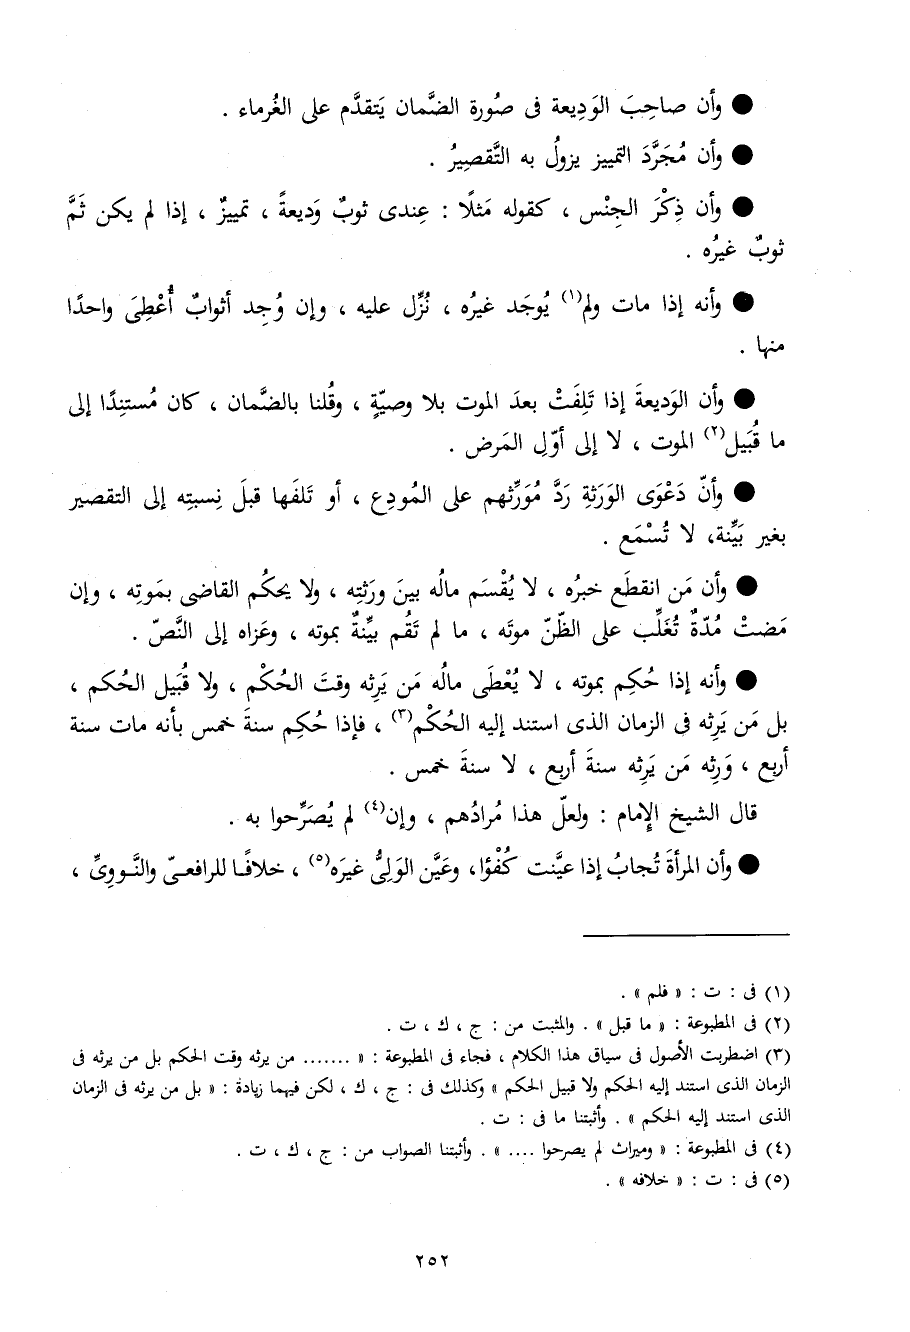 ● وأن صاحِبَ الوَدِيعة فى صُورة الضَّمان يَتقدَّم على الغُرماء .
● وأن مُجَرَّدَ التمييز يزولُ به التَّقصِيرُ .
● وأن ذِكْرَ الجِنْس ، كقوله مَثلًا : عِندى ثوبٌ وَديعةً ، تمييزٌ ، إذا لم يكن ثَمَّ
ثوبٌ غيرُه .
● وأنه إذا مات ولم(١) يُوجَد غيرُه ، نُزِّل عليه ، وإن وُجِد أثوابٌ أُعْطِىَ واحدًا
منها .
● وأن الوَديعةَ إذا تَلِفَتْ بعدَ الموت بلا وصيّةٍ ، وقُلنا بالضَّمان ، كان مُستنِدًا إلى
ما قُبَيل(٢) الموت ، لا إلى أوّلِ المَرض .
● وأنّ دَعْوَى الوَرَثةِ رَدَّ مُوَرِّثهم على المُودِع ، أو تَلفَها قبلَ نِسبتِه إلى التقصير
بغير بَيِّنة، لا تُسْمَع .
● وأن مَن انقطَع خبرُه ، لا يُقْسَم مالُه بينَ ورَثتِه ، ولا يحكُم القاضى بمَوتِه ، وإن
مَضتْ مُدّةٌ تُغَلِّب على الظّنّ موتَه ، ما لم تَقُم بيِّنةٌ بموته ، وعَزاه إلى النَّصّ .
● وأنه إذا حُكِم بموته ، لا يُعْطَى مالُه مَن يَرِثه وقتَ الحُكْم ، ولا قُبَيل الحُكم ،
بل مَن يَرِثه فى الزمان الذى استند إليه الحُكْم(٣) ، فإذا حُكِم سنةَ خمس بأنه مات سنة
أربع ، وَرِثه مَن يَرِثه سنةَ أربع ، لا سنةَ خمس .
قال الشيخ الإمام : ولعلّ هذا مُرادُهم ، وإن(٤) لم يُصَرِّحوا به .
● وأن المرأةَ تُجابُ إذا عيَّنت كُفْؤا، وعَيَّن الوَلِىُّ غيرَه(٥) ، خلافًا للرافعىّ والنَّووِىِّ ،
(١) فى : ت : « فلم » .
(٢) فى المطبوعة : « ما قبل » . والمثبت من : ج ، ك ، ت .
(٣) اضطربت الأصول فى سياق هذا الكلام ، فجاء فى المطبوعة : « ....... من يرثه وقت الحكم بل من يرثه فى
الزمان الذى استند إليه الحكم ولا قبيل الحكم » وكذلك فى : ج ، ك ، لكن فيهما زيادة : « بل من يرثه فى الزمان
الذى استند إليه الحكم » . وأثبتنا ما فى : ت .
(٤) فى المطبوعة : « وميراث لم يصرحوا .... » . وأثبتنا الصواب من : ج ، ك ، ت .
(٥) فى : ت : « خلافه » .
٢٥٢